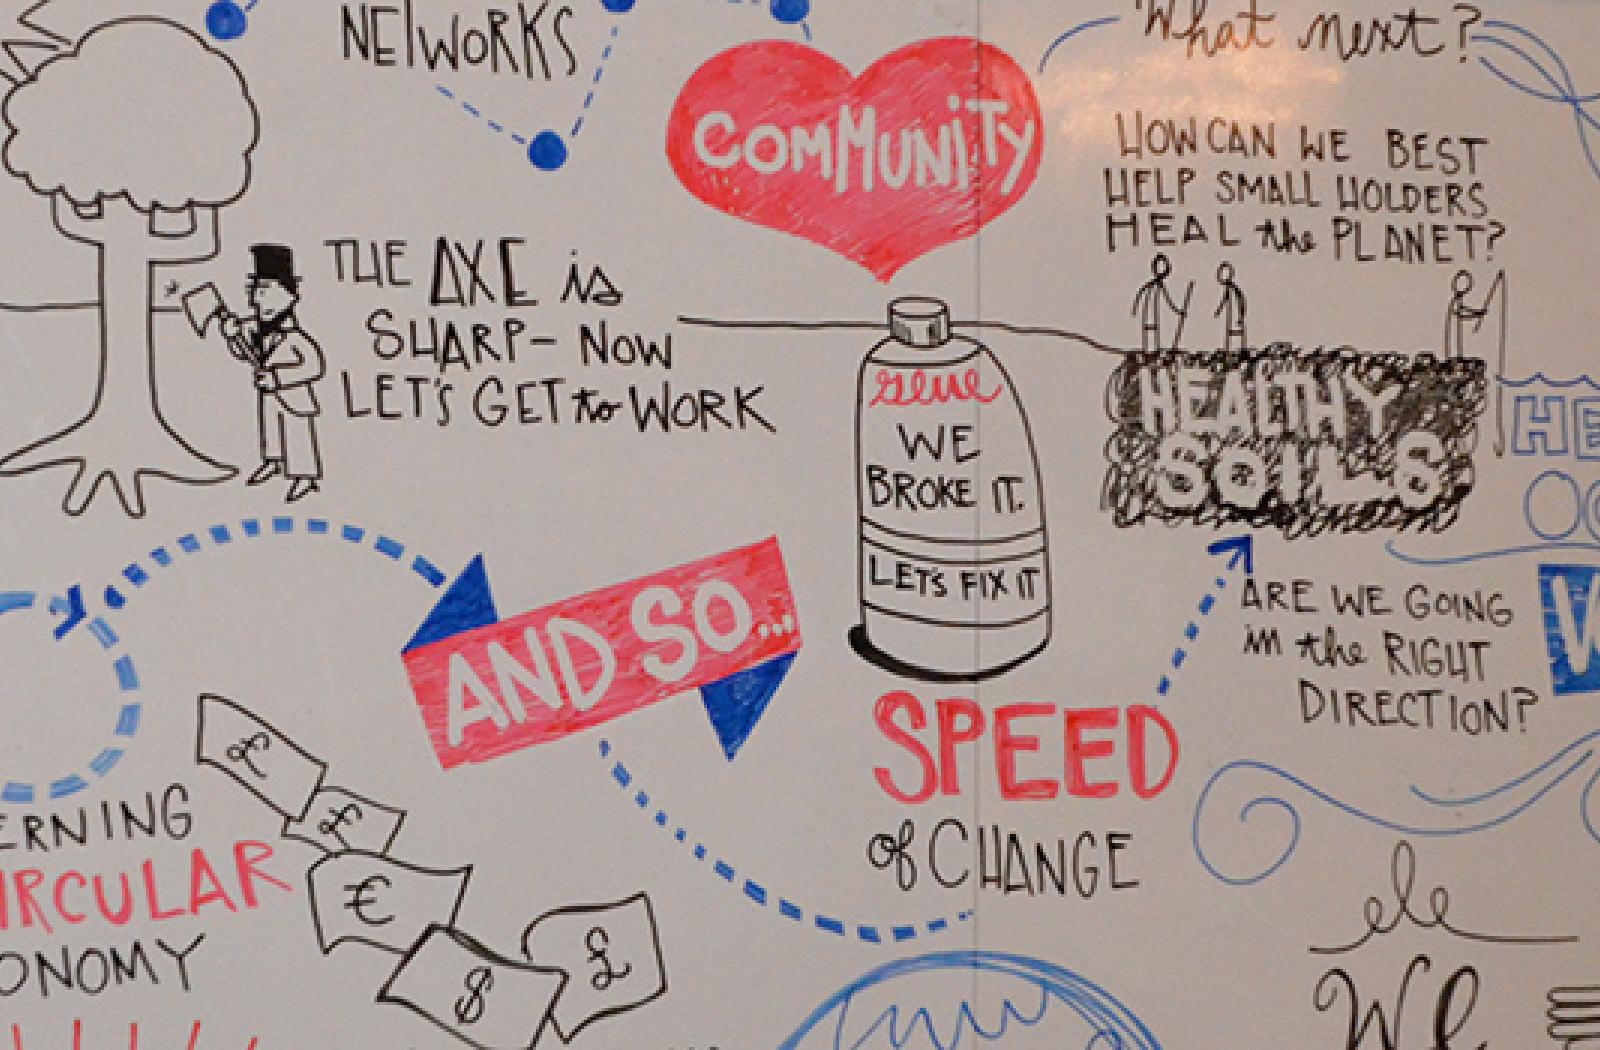 NETWORKS
COMMUNITY
What next?
HOW CAN WE BEST
HELP SMALL HOLDERS
HEAL the PLANET?
THE AXE is
SHARP- NOW
LET'S GET to WORK
glue
WE
BROKE IT.
LET'S FIX IT
HEALTHY
SOILS
HE
AND SO...
ARE WE GOING
in the RIGHT
DIRECTION?
SPEED
of CHANGE
£
£
€
$
£
ERNING
IRCULAR
ONOMY